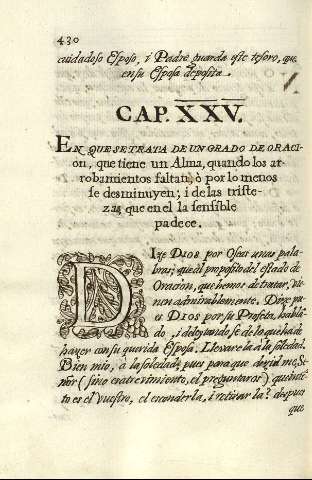 430
cuidadoso Esposo, i Padre guarda este tesoro, que
en su Esposa deposita.
CAP. XXV.
EN QUE SE TRATA DE UN GRADO DE ORACI-
on, que tiene un Alma, quando los ar-
robamientos faltan, ò por lo menos
se desminuyen; i de las triste-
zas que en el la sensible
padece.
DIze DIOS por Oseas unas pala-
bras, que al proposito del estado de
Oracion, que hemos de tratar, vie-
nen admirablemente. Dize pu-
es DIOS por su Profeta, hablã-
do, i de lo que ha de
hazer con su querida Esposa. Llevare la à la soledad.
Bien mio, à la soledad? pues para que dezid me, Se-
ñor ( sino es atrevimiento, el preguntaros ) que in-
to es el vuestro, el esconderla, i retirar la? despues
que